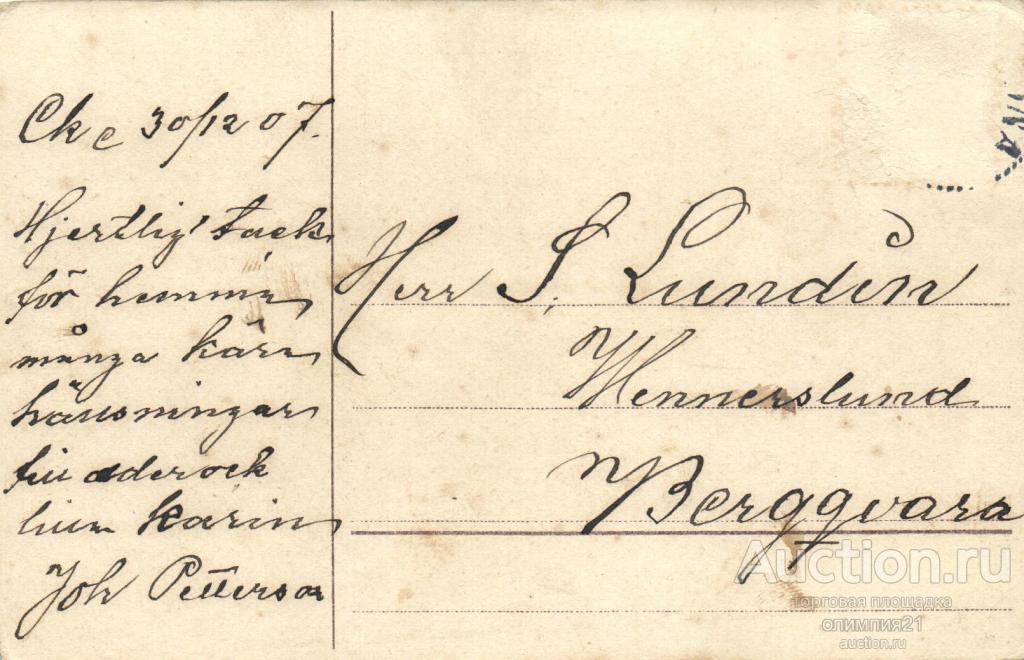 Ck c 30/12 07.
Hjertlig tack
för hemmin
många kära
hälsningar
till eder ock
lilla Karin
Joh Petterson
Herr S. Lundin
Wennerslund
Bergqvara
Auction.ru
торговая площадка
олимпия21
auction.ru